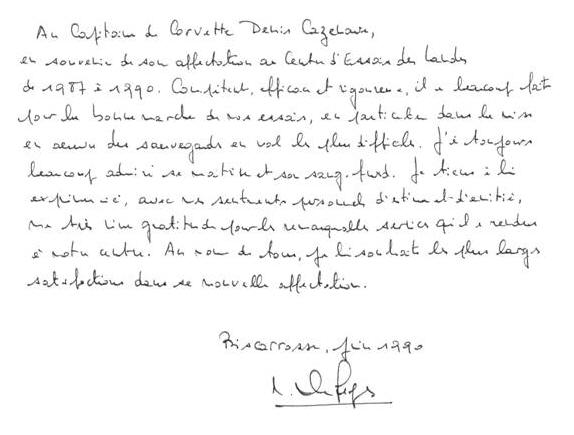 Au Capitaine de Corvette Denis Cazenave,
en souvenir de son affectation au Centre d'Essais des Landes
de 1987 à 1990. Compétent, efficace et rigoureux, il a beaucoup fait
pour la bonne marche de nos essais, en particulier dans la mise
en œuvre des sauvegardes en vol les plus difficiles. J'ai toujours
beaucoup admiré sa maîtrise et son sang-froid. Je tiens à lui
exprimer ici, avec mes sentiments personnels d'estime et d'amitié,
ma très vive gratitude pour les remarquables services qu'il a rendus
à notre centre. Au nom de tous, je lui souhaite les plus larges
satisfactions dans sa nouvelle affectation.
Biscarrosse, juin 1990